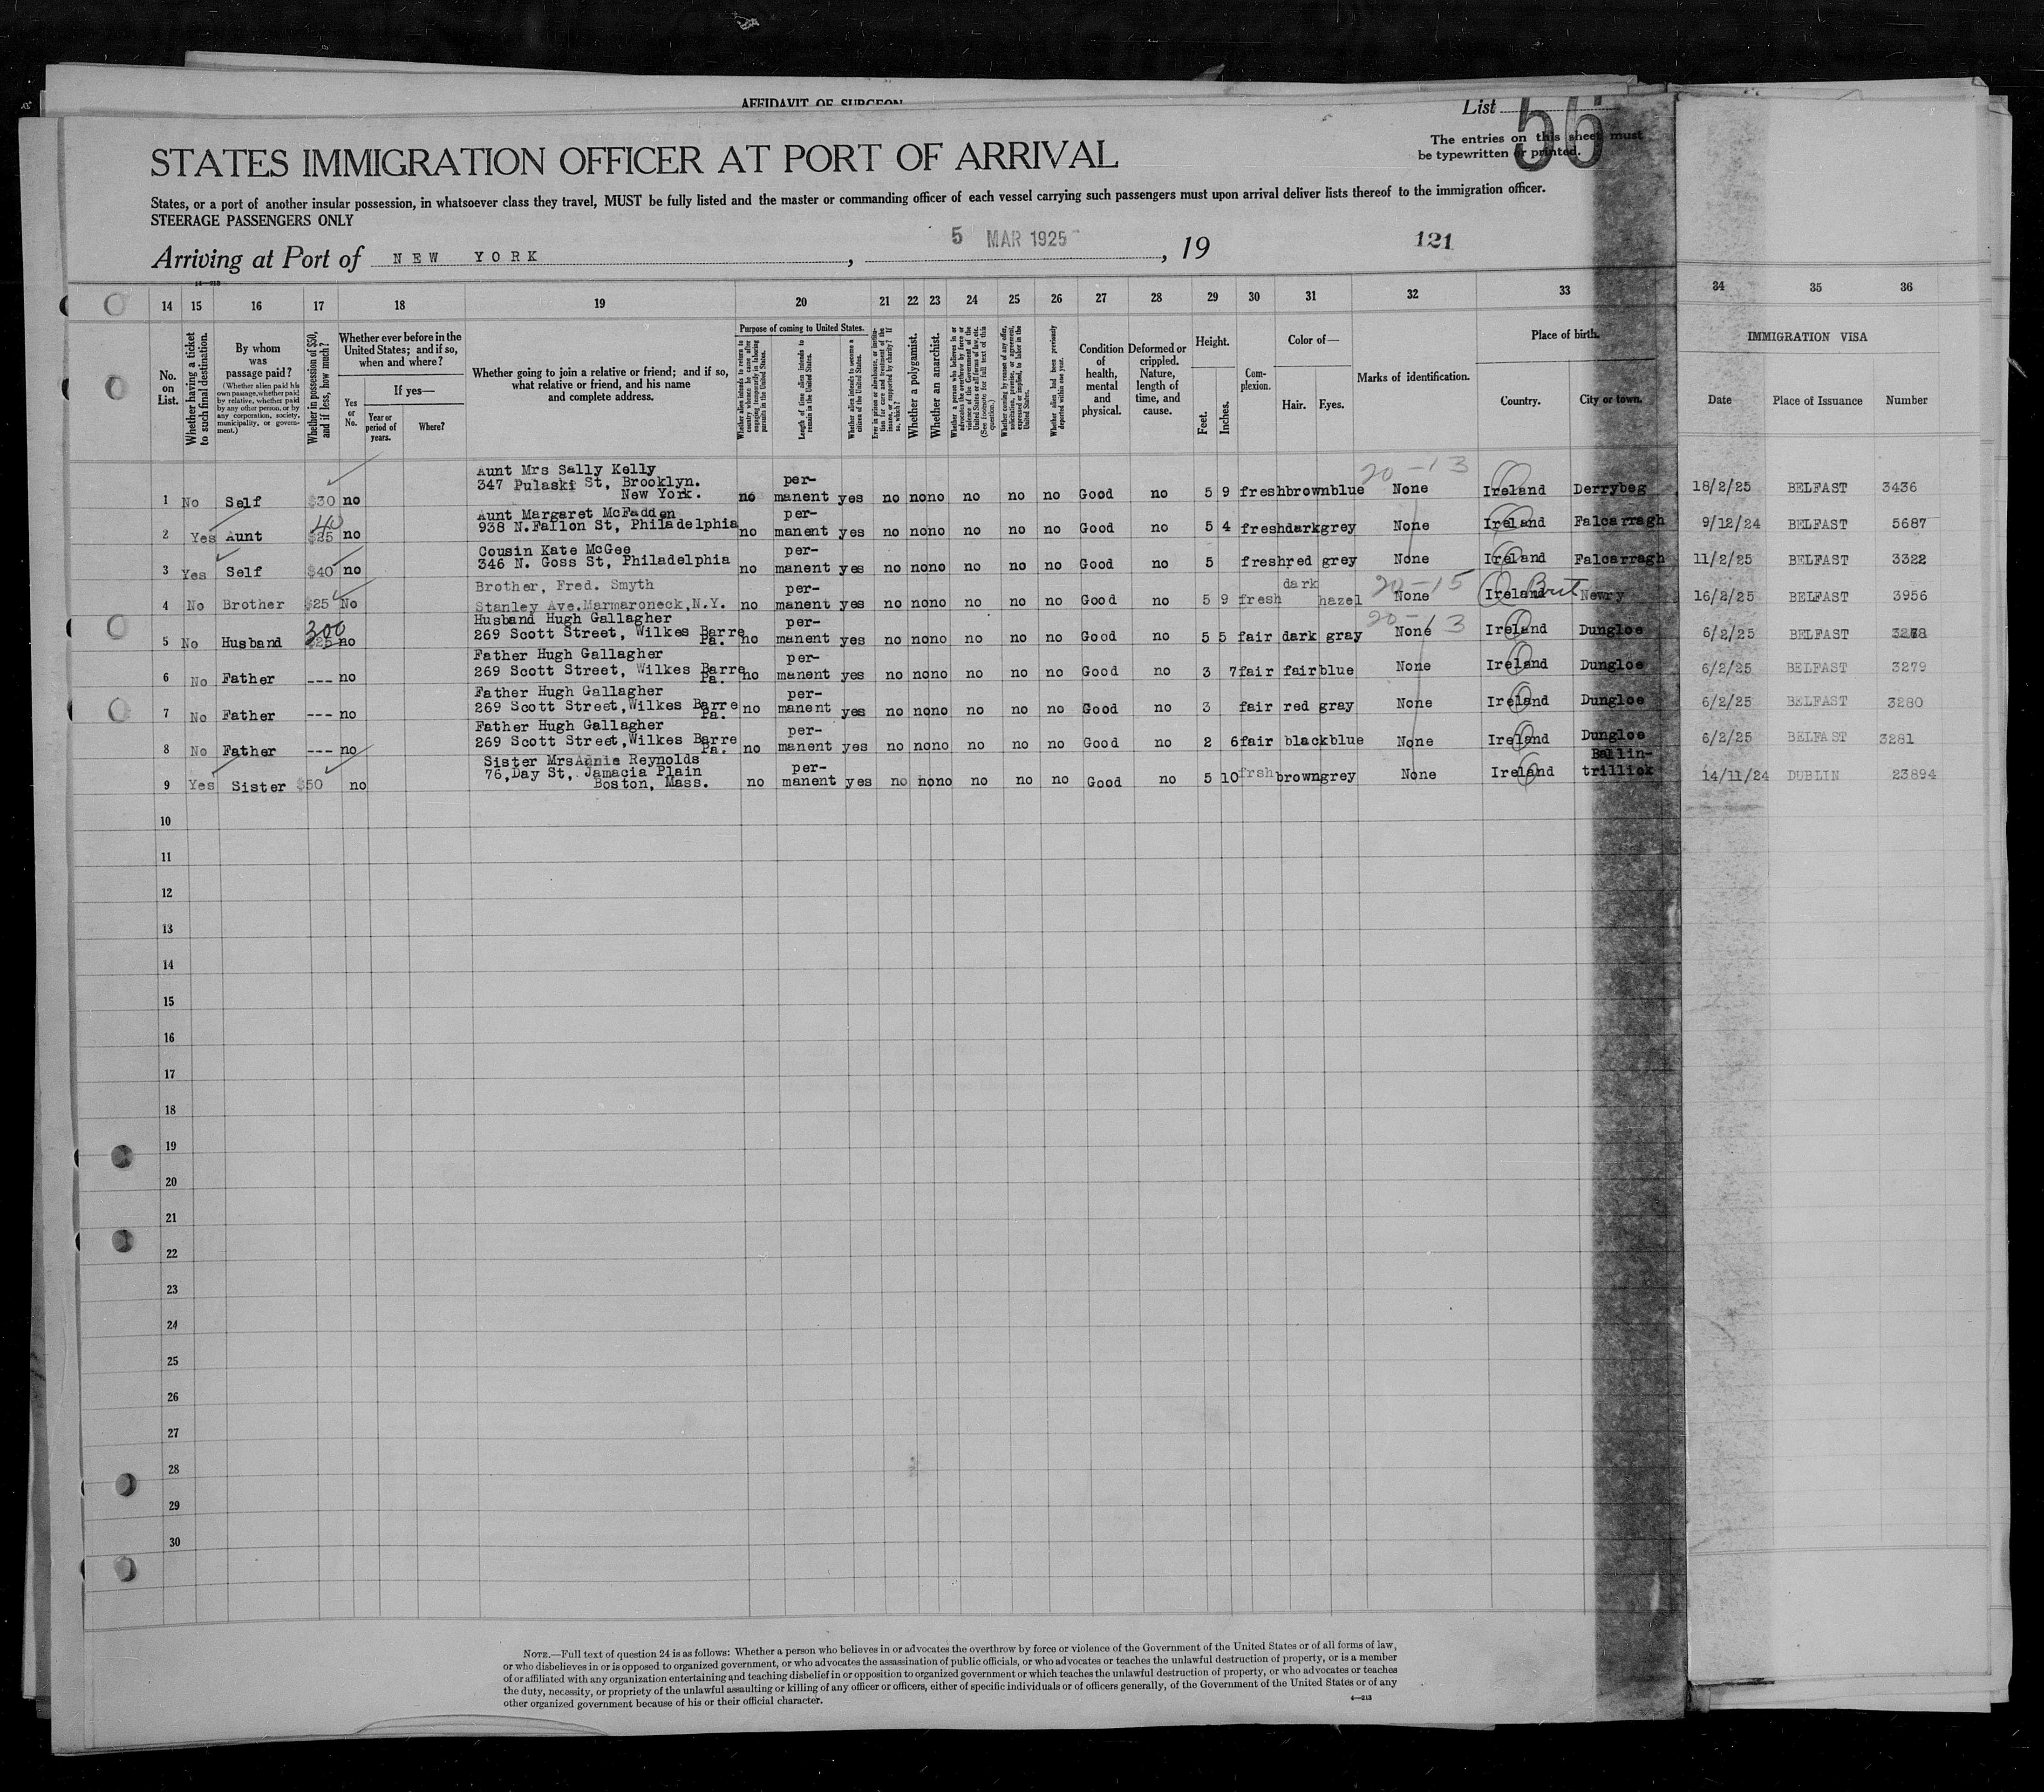 AFFIDAVIT OF SURGEON
List 56
The entries on this sheet must
be typewritten or printed.
STATES IMMIGRATION OFFICER AT PORT OF ARRIVAL
States, or a port of another insular possession, in whatsoever class they travel, MUST be fully listed and the master or commanding officer of each vessel carrying such passengers must upon arrival deliver lists thereof to the immigration officer.
STEERAGE PASSENGERS ONLY
Arriving at Port of NEW YORK, 5 MAR 1925, 19 121
14 15 16 17 18 19 20 21 22 23 24 25 26 27 28 29 30 31 32 33 34 35 36
No. on List.
Whether having a ticket to such final destination.
By whom was passage paid?
(Whether alien paid his own passage, whether paid by relative, whether paid by any other person, or by any corporation, society, municipality, or government.)
Whether in possession of $50, and if less, how much?
Whether ever before in the United States; and if so, when and where?
Yes or No.
If yes—
Year or period of years.
Where?
Whether going to join a relative or friend; and if so, what relative or friend, and his name and complete address.
Purpose of coming to United States.
Whether alien intends to return to country whence he came after engaging temporarily in laboring pursuits in the United States.
Length of time alien intends to remain in the United States.
Whether alien intends to become a citizen of the United States.
Ever in prison or almshouse, or institution for care and treatment of the insane, or supported by charity? If so, which?
Whether a polygamist.
Whether an anarchist.
Whether a person who believes in or advocates the overthrow by force or violence of the Government of the United States or all forms of law, etc. (See footnote for full text of this question.)
Whether coming by reason of any offer, solicitation, promise, or agreement, expressed or implied, to labor in the United States.
Whether alien has been previously deported within one year.
Condition of health, mental and physical.
Deformed or crippled. Nature, length of time, and cause.
Height.
Feet. Inches.
Complexion.
Color of—
Hair. Eyes.
Marks of identification.
Place of birth.
Country. City or town.
IMMIGRATION VISA
Date Place of Issuance Number
Aunt Mrs Sally Kelly
347 Pulaski St, Brooklyn.
New York.
1 No Self $30 no no permanent yes no no no no no no Good no 5 9 fresh brown blue None 20-13 Ireland Derrybeg 18/2/25 BELFAST 3436
Aunt Margaret McFadden
938 N.Fallon St, Philadelphia
2 Yes Aunt $25 40 no no permanent yes no no no no no no Good no 5 4 fresh dark grey None Ireland Falcarragh 9/12/24 BELFAST 5687
Cousin Kate McGee
346 N. Goss St, Philadelphia
3 Yes Self $40 no no permanent yes no no no no no no Good no 5 fresh red grey None Ireland Falcarragh 11/2/25 BELFAST 3322
Brother, Fred. Smyth
Stanley Ave.Marmaroneck,N.Y.
4 No Brother $25 No no permanent yes no no no no no no Good no 5 9 fresh dark hazel None 20-15 Ireland Brit Newry 16/2/25 BELFAST 3956
Husband Hugh Gallagher
269 Scott Street, Wilkes Barre
Pa.
5 No Husband $25 300 no no permanent yes no no no no no no Good no 5 5 fair dark gray None 20-13 Ireland Dungloe 6/2/25 BELFAST 3278
Father Hugh Gallagher
269 Scott Street, Wilkes Barre
Pa.
6 No Father --- no no permanent yes no no no no no no Good no 3 7 fair fair blue None Ireland Dungloe 6/2/25 BELFAST 3279
Father Hugh Gallagher
269 Scott Street,Wilkes Barre
Pa.
7 No Father --- no no permanent yes no no no no no no Good no 3 fair red gray None Ireland Dungloe 6/2/25 BELFAST 3280
Father Hugh Gallagher
269 Scott Street,Wilkes Barre
Pa.
8 No Father --- no no permanent yes no no no no no no Good no 2 6 fair black blue None Ireland Dungloe 6/2/25 BELFAST 3281
Sister MrsAnnie Reynolds
76,Day St, Jamacia Plain
Boston, Mass.
9 Yes Sister $50 no no permanent yes no no no no no no Good no 5 10 frsh brown grey None Ireland Ballin-trillick 14/11/24 DUBLIN 23894
10
11
12
13
14
15
16
17
18
19
20
21
22
23
24
25
26
27
28
29
30
NOTE.—Full text of question 24 is as follows: Whether a person who believes in or advocates the overthrow by force or violence of the Government of the United States or of all forms of law,
or who disbelieves in or is opposed to organized government, or who advocates the assassination of public officials, or who advocates or teaches the unlawful destruction of property, or is a member
of or affiliated with any organization entertaining and teaching disbelief in or opposition to organized government or which teaches the unlawful destruction of property, or who advocates or teaches
the duty, necessity, or propriety of the unlawful assaulting or killing of any officer or officers, either of specific individuals or of officers generally, of the Government of the United States or of any
other organized government because of his or their official character.
4—213